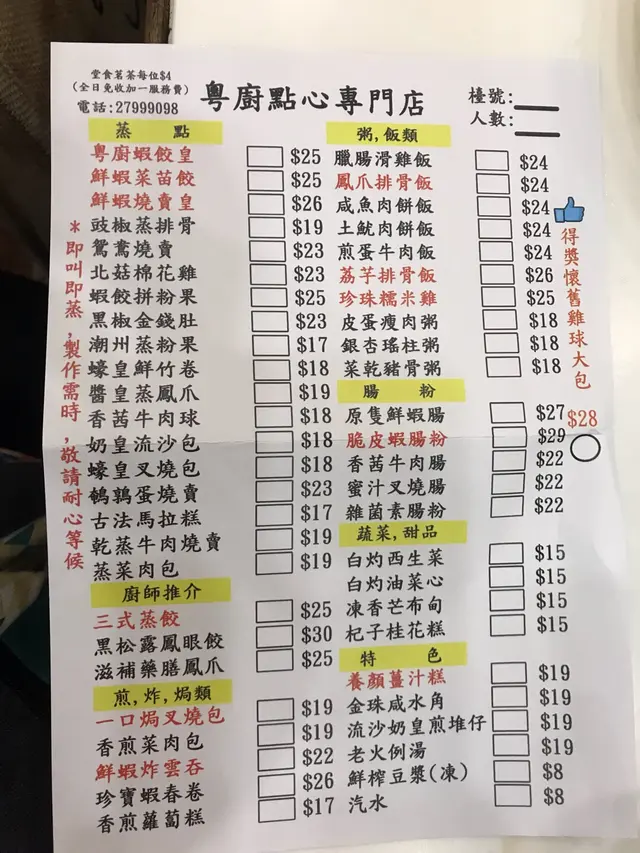 堂食茗茶每位$4
(全日免收加一服務費)
電話:27999098
粵廚點心專門店
檯號:
人數:
蒸 點
粵廚蝦餃皇 $25
鮮蝦菜苗餃 $25
鮮蝦燒賣皇 $26
豉椒蒸排骨 $19
鴛鴦燒賣 $23
北菇棉花雞 $23
蝦餃拼粉果 $25
黑椒金錢肚 $23
潮州蒸粉果 $17
蠔皇鮮竹卷 $18
醬皇蒸鳳爪 $19
香茜牛肉球 $18
奶皇流沙包 $18
蠔皇叉燒包 $18
鵪鶉蛋燒賣 $23
古法馬拉糕 $17
乾蒸牛肉燒賣 $19
蒸菜肉包 $19
廚師推介
三式蒸餃 $25
黑松露鳳眼餃 $30
滋補藥膳鳳爪 $25
煎,炸,焗類
一口焗叉燒包 $19
香煎菜肉包 $19
鮮蝦炸雲吞 $22
珍寶蝦春卷 $26
香煎蘿蔔糕 $17
*即叫即蒸,製作需時,敬請耐心等候
粥,飯類
臘腸滑雞飯 $24
鳳爪排骨飯 $24
咸魚肉餅飯 $24
土魷肉餅飯 $24
煎蛋牛肉飯 $24
荔芋排骨飯 $26
珍珠糯米雞 $25
皮蛋瘦肉粥 $18
銀杏瑤柱粥 $18
菜乾豬骨粥 $18
腸 粉
原隻鮮蝦腸 $27
脆皮蝦腸粉 $29
香茜牛肉腸 $22
蜜汁叉燒腸 $22
雜菌素腸粉 $22
蔬菜,甜品
白灼西生菜 $15
白灼油菜心 $15
凍香芒布甸 $15
杞子桂花糕 $15
特 色
養顏薑汁糕 $19
金珠咸水角 $19
流沙奶皇煎堆仔 $19
老火例湯 $19
鮮榨豆漿(凍) $8
汽水 $8
得獎懷舊雞球大包
$28